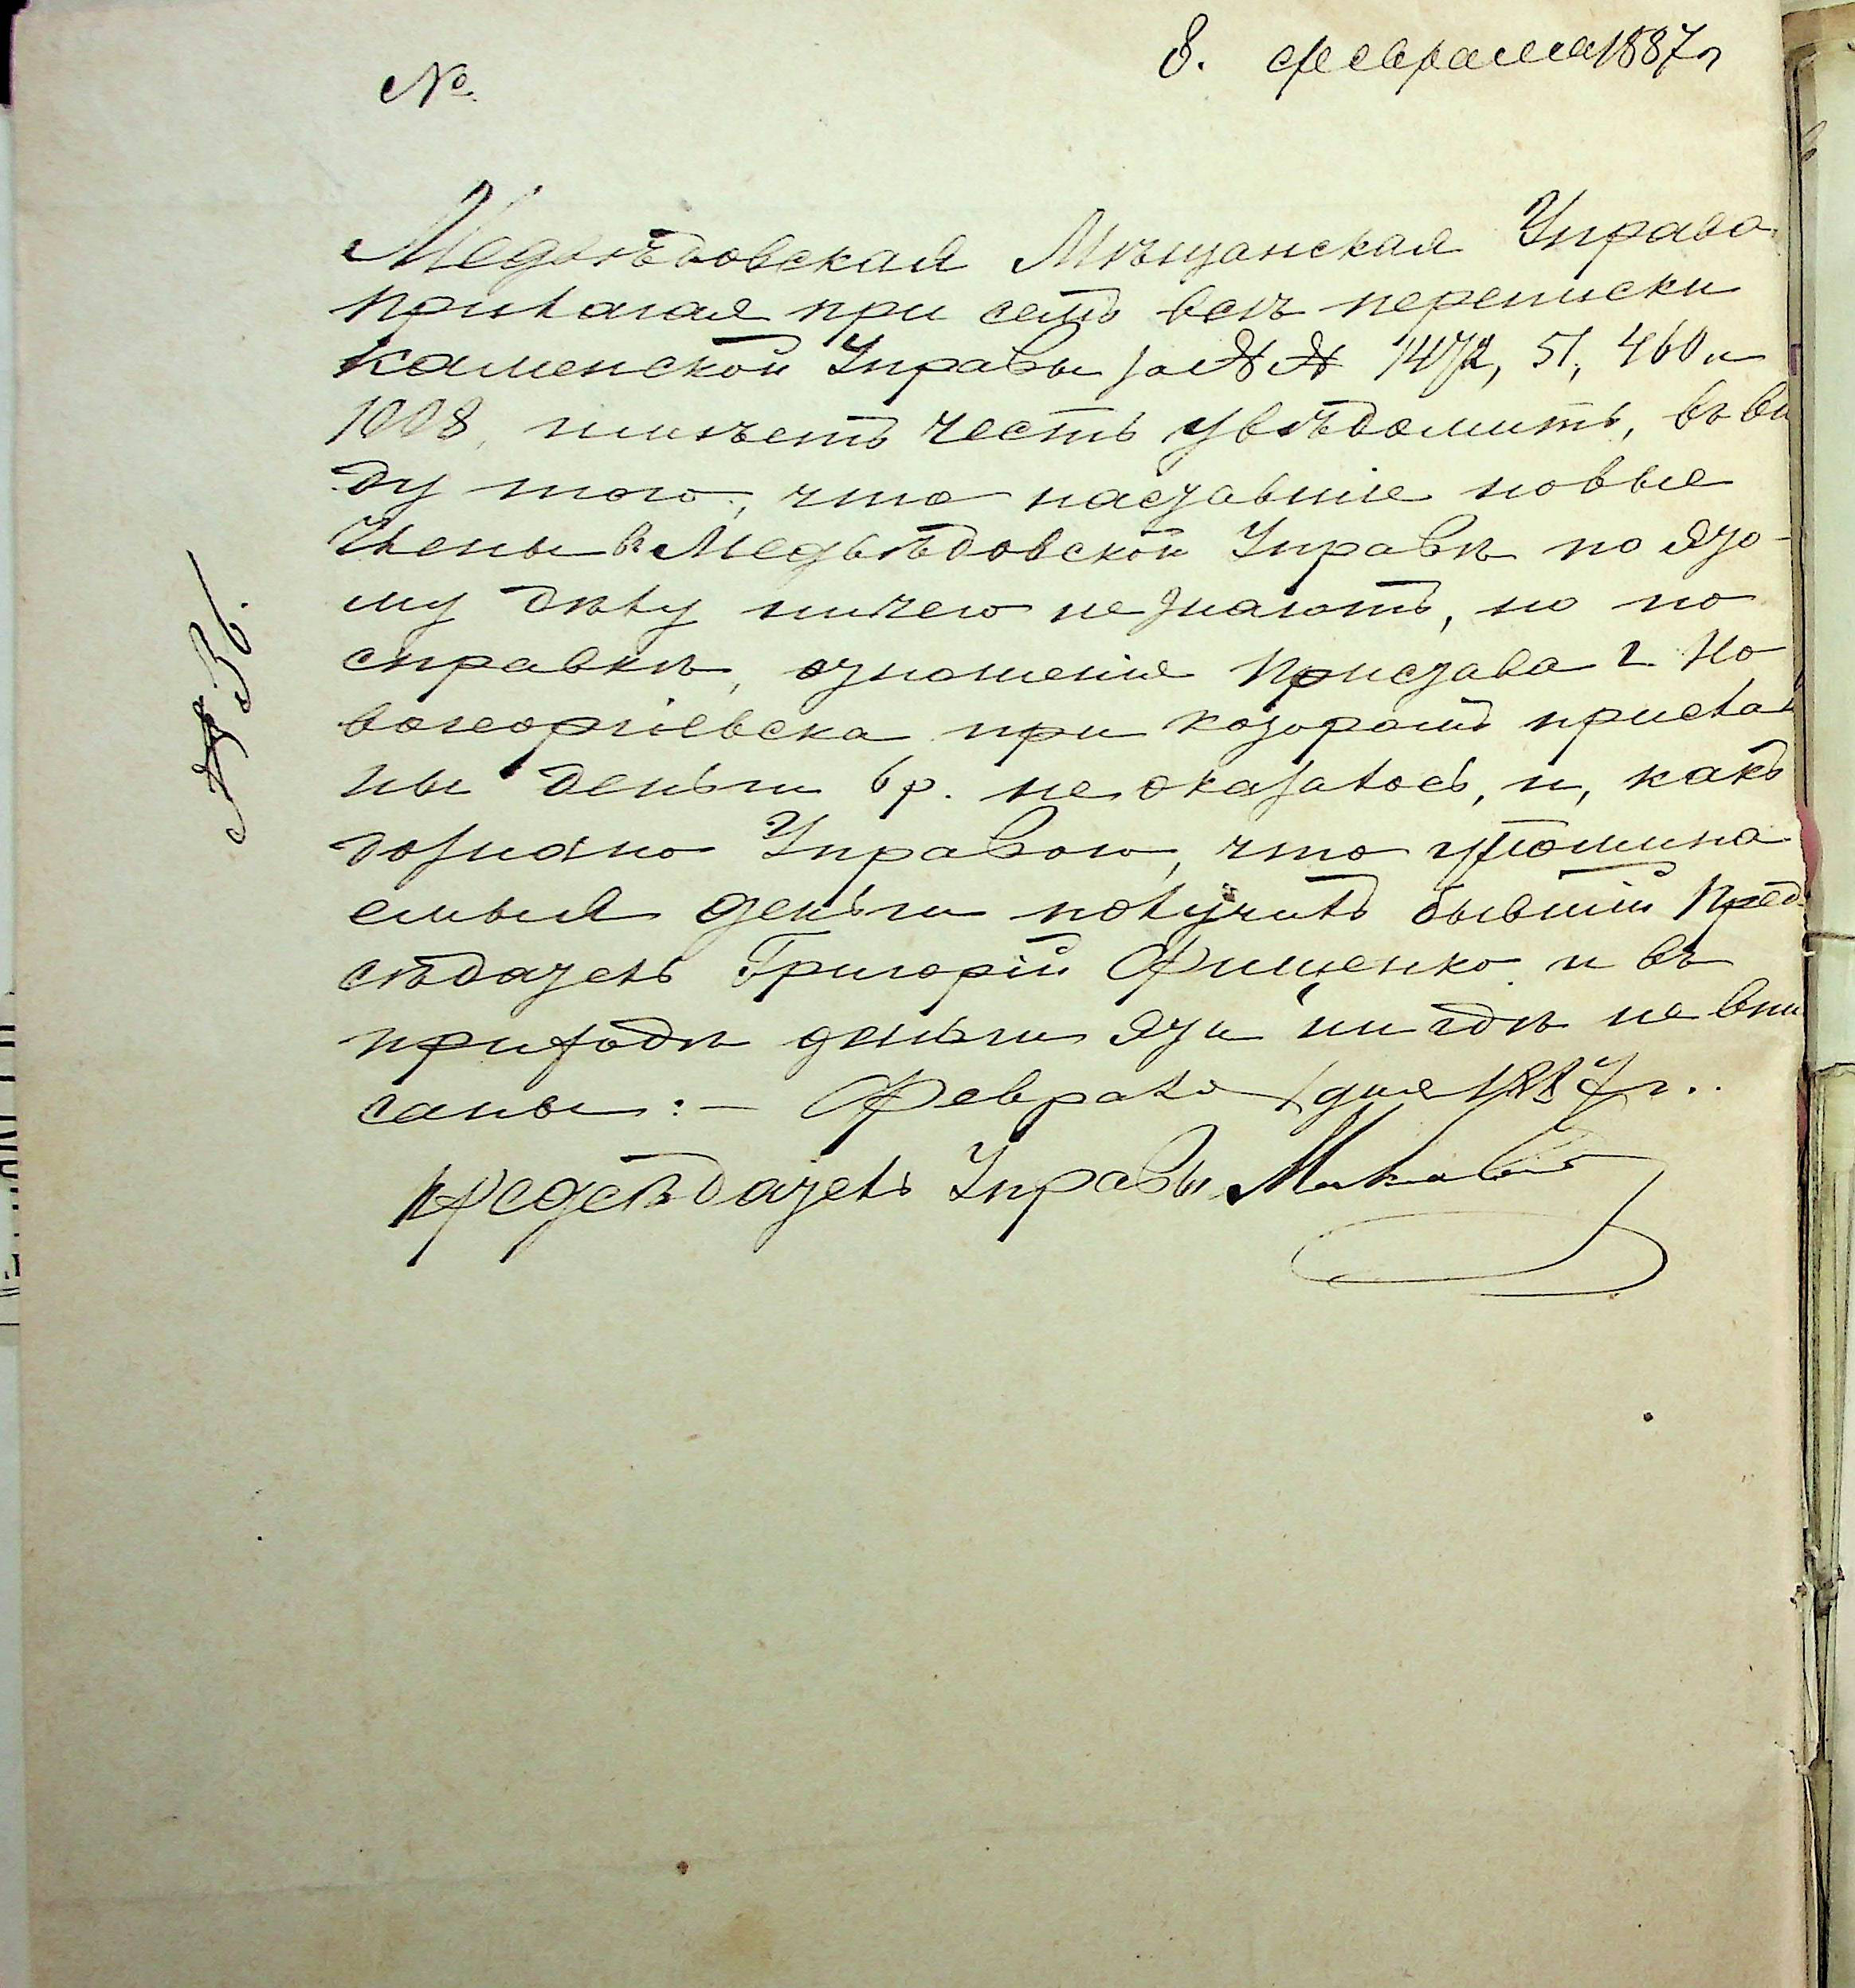 №
8. февраля 1887 г
Медвѣдовская Мѣщанская Управа,
прилагая при семъ всѣ переписки
Каменской Управы за №№ 1472, 51, 460 и
1008, имѣетъ честь увѣдомить, въ ви
ду того, что наставшіе новые
Члены в Медвѣдовской Управѣ по это-
му дѣлу ничего незнаютъ, но по
справкѣ, отношенія Пристава г. Но
вогеоргіевска при которомъ присла
ны деньги 6 р. не оказалось, и, какъ
дознано Управою, что упомина
емыя деньги получилъ бывшій Пред
сѣдатель Григорій Фищенко и въ
приходѣ деньги эти нигдѣ не впи
саны: – Февраля дня 1887 г..
Предсѣдатель Управы
№ 36.